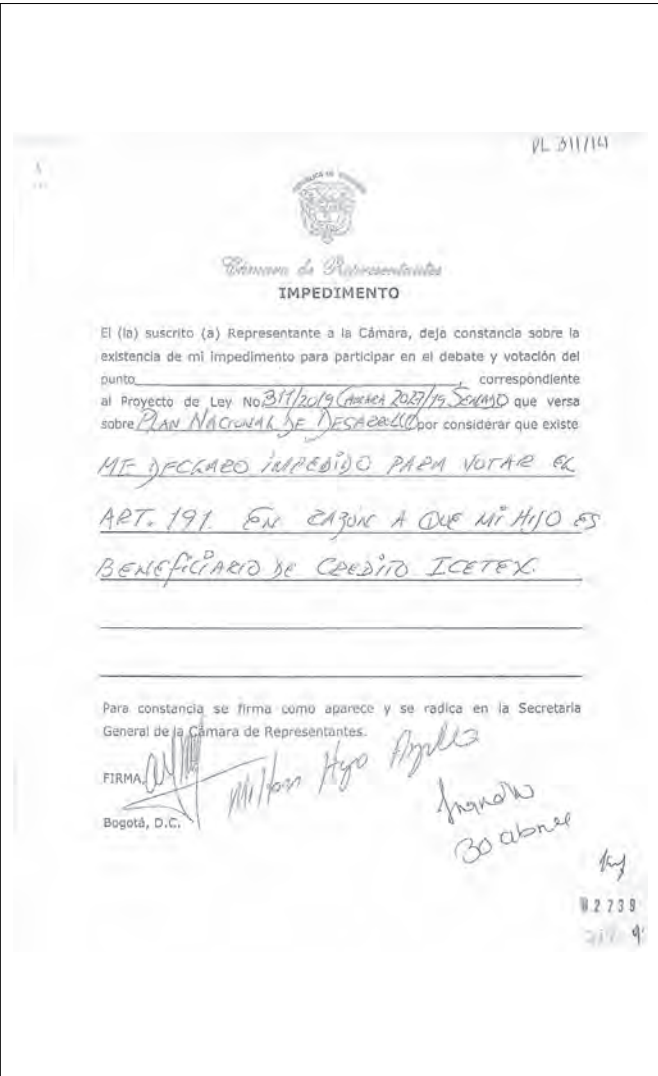 PL 311/19
REPÚBLICA DE COLOMBIA
Cámara de Representantes
IMPEDIMENTO
El (la) suscrito (a) Representante a la Cámara, dejo constancia sobre la
existencia de mi impedimento para participar en el debate y votación del
punto, correspondiente
al Proyecto de Ley No. 311/2019 CAMARA 227/19 SENADO que versa
sobre PLAN NACIONAL DE DESARROLLO por considerar que existe
ME DECLARO IMPEDIDO PARA VOTAR EL
ART. 191. EN RAZON A QUE MI HIJO ES
BENEFICIARIO DE CREDITO ICETEX.
Para constancia se firma como aparece y se radica en la Secretaria
General de la Cámara de Representantes.
FIRMA,
Milton Hugo Angulo
Bogotá, D.C.
30 abril
02739